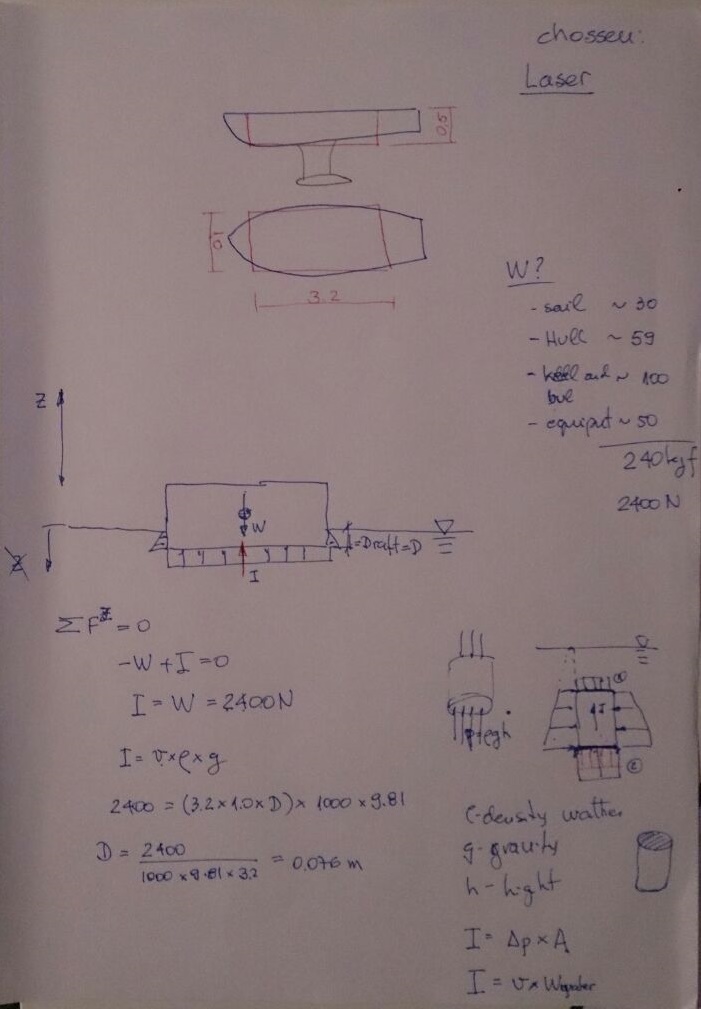 chosseu:
Laser
0,5
1,0
3.2
W?
- sail ~ 30
- Hull ~ 59
- keel and ~ 100
bul
- equiput ~ 50
240 kgf
2400 N
Z
W
=Draft=D
I
ΣF^Z = 0
-W + I = 0
I = W = 2400N
I = v×ρ×g
2400 = (3.2×1.0×D)× 1000 ×9.81
D = 2400 / 1000 × 9.81 × 3.2 = 0,076 m
I
①
②
ρ-density wather
g- gravity
h - hight
I = Δp × A
I = v ×